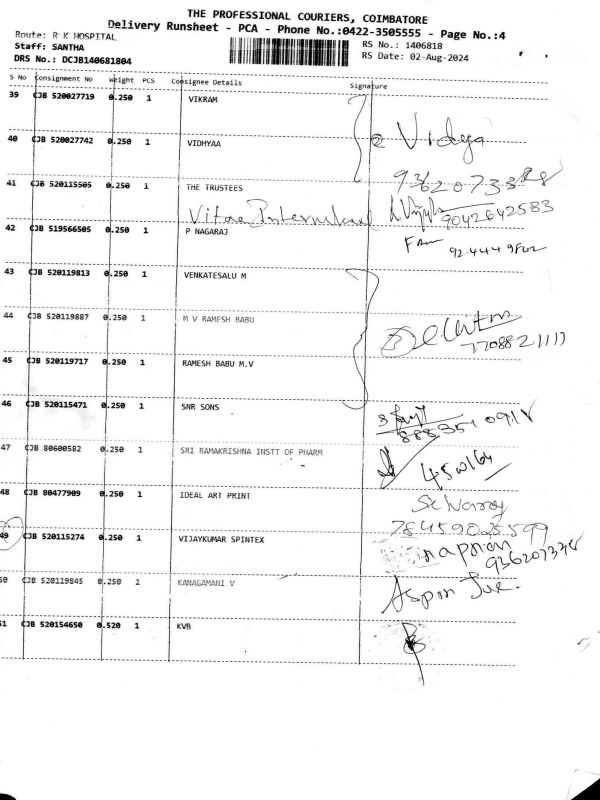 THE PROFESSIONAL COURIERS, COIMBATORE
Delivery Runsheet - PCA - Phone No.:0422-3505555 - Page No.:4
Route: R K HOSPITAL
RS No.: 1406818
Staff: SANTHA
RS Date: 02-Aug-2024
DRS No.: DCJB140681804
S No Consignment No Weight PCS Consignee Details Signature
39 CJB 520027719 0.250 1 VIKRAM
40 CJB 520027742 0.250 1 VIDHYAA Vidya
41 CJB 520115505 0.250 1 THE TRUSTEES
9042642583
42 CJB 519566505 0.250 1 P NAGARAJ
43 CJB 520119813 0.250 1 VENKATESALU M
44 CJB 520119887 0.250 1 M V RAMESH BABU
7708821111
45 CJB 520119717 0.250 1 RAMESH BABU M.V
46 CJB 520115471 0.250 1 SNR SONS
47 CJB 80600582 0.250 1 SRI RAMAKRISHNA INSTT OF PHARM
48 CJB 80477909 0.250 1 IDEAL ART PRINT
49 CJB 520115274 0.250 1 VIJAYKUMAR SPINTEX
50 CJB 520119845 0.250 1 KANAGAMANI V
51 CJB 520154650 0.520 1 KVB